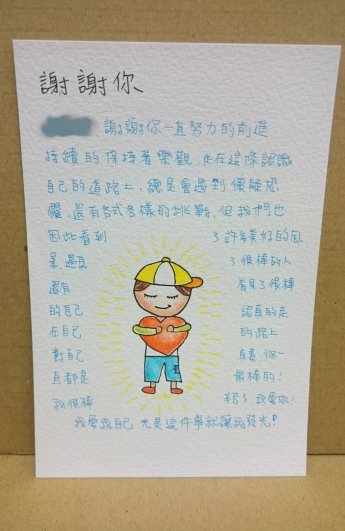 謝謝你
謝謝你一直努力的前進
持續的保持著樂觀,走在這條認識
自己的道路上,總是會遇到懷疑恐
懼,還有各式各樣的挑戰,但我們也
因此看到 了許多美好的風
景,遇見 了很棒的人
還有 看見了很棒
的自己 認真的走
在自己 的路上
對自己 負責,你一
直都是 最棒的!
我很棒 辛苦了,我愛你!
我愛我自己 光是這件事就讓我發光!